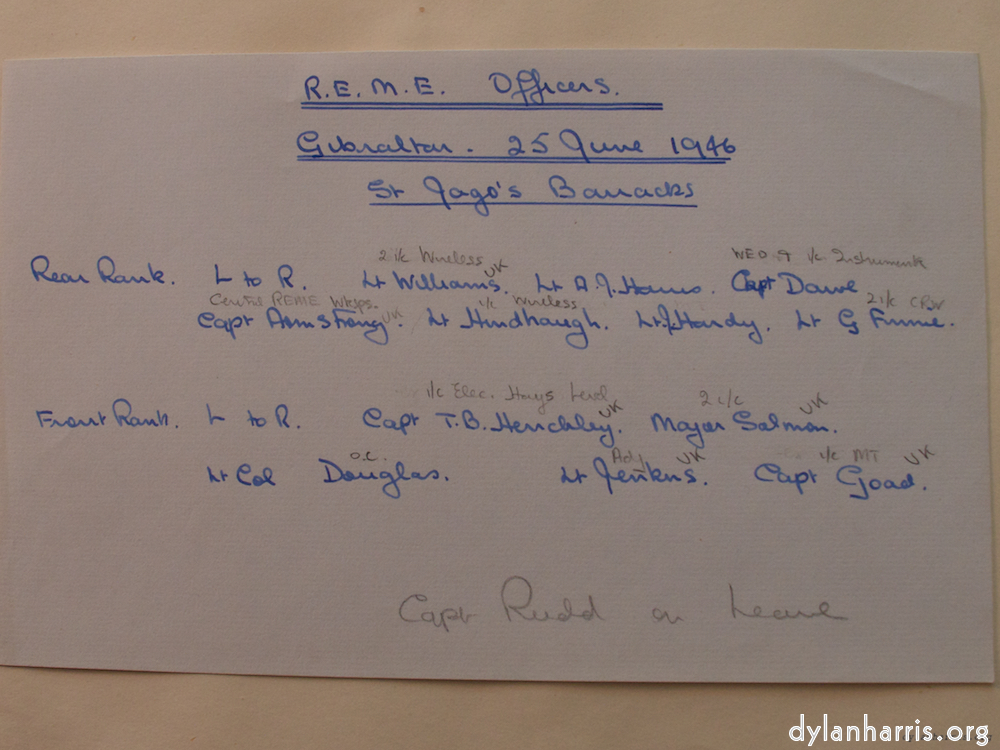 R.E.M.E. Officers.
Gibraltar. 25 June 1946
St Jago's Barracks
2 i/c Wireless UK WEO 9 i/c Instruments
Rear Rank. L to R. Lt Williams. Lt A.J. Harris. Capt Dawe
Central REME Wksps. UK i/c Wireless 2 i/c
Capt Armstrong. Lt Hindhaugh. Lt J Hardy. Lt G Finnie.
i/c Elec. UK 2 i/c UK
Front Rank. L to R. Capt T.B. Henchley. Major Salmon.
O.C. Adj UK i/c MT UK
Lt Col Douglas. Lt Jenkins. Capt Goad.
Capt Rudd on Leave
dylanharris.org